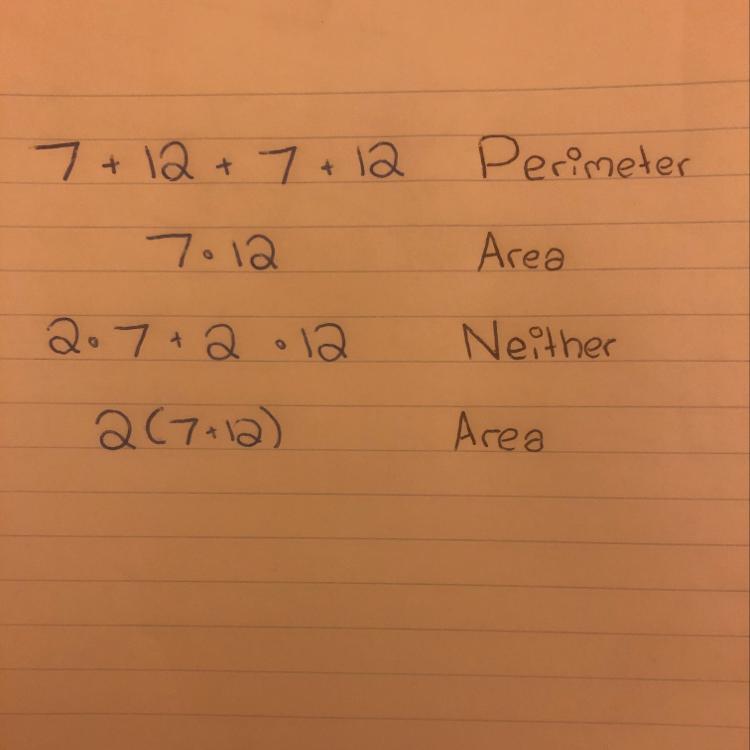 7 + 12 + 7 + 12 Perimeter
7 · 12 Area
2 · 7 + 2 · 12 Neither
2(7+12) Area